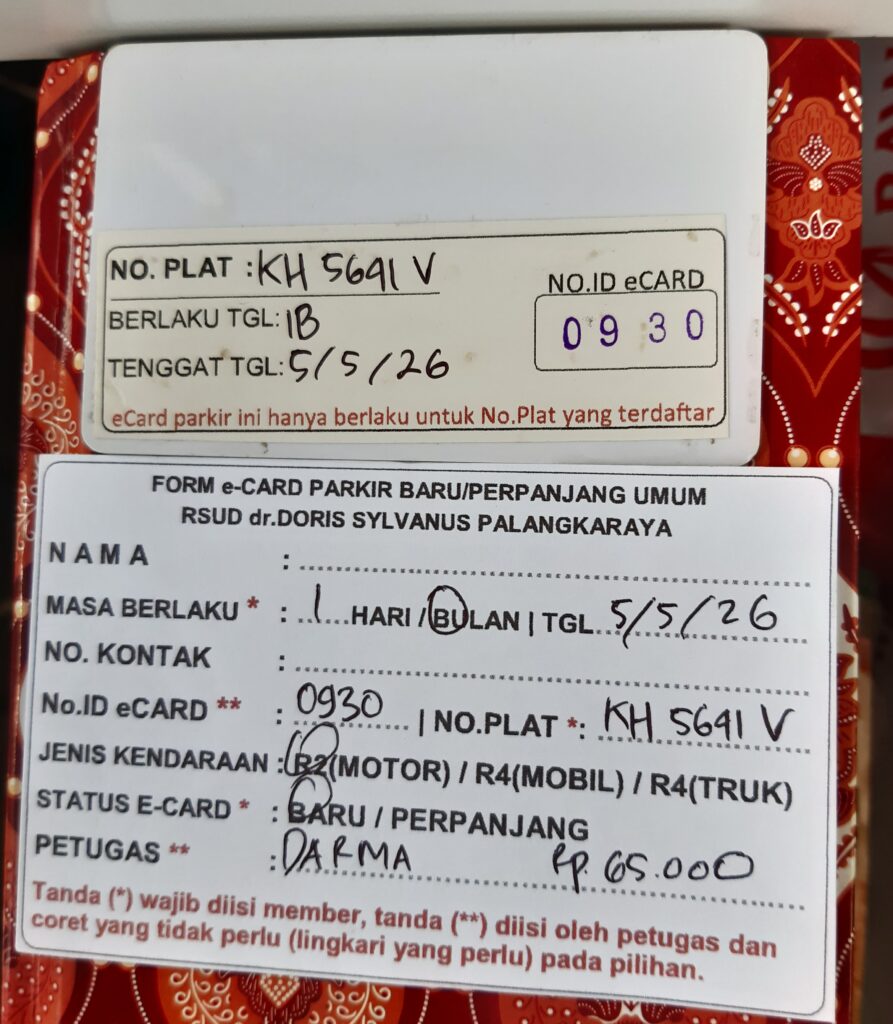 NO. PLAT : KH 5691 V
BERLAKU TGL: 1B
TENGGAT TGL: 5/5/26
NO.ID eCARD
0930
eCard parkir ini hanya berlaku untuk No.Plat yang terdaftar
FORM e-CARD PARKIR BARU/PERPANJANG UMUM
RSUD dr.DORIS SYLVANUS PALANGKARAYA
NAMA :
MASA BERLAKU * : 1 HARI / BULAN | TGL 5/5/26
NO. KONTAK :
No.ID eCARD ** : 0930 | NO.PLAT *: KH 5691 V
JENIS KENDARAAN : R2(MOTOR) / R4(MOBIL) / R4(TRUK)
STATUS E-CARD * : BARU / PERPANJANG
PETUGAS ** : DARMA Rp. 65.000
Tanda (*) wajib diisi member, tanda (**) diisi oleh petugas dan
coret yang tidak perlu (lingkari yang perlu) pada pilihan.